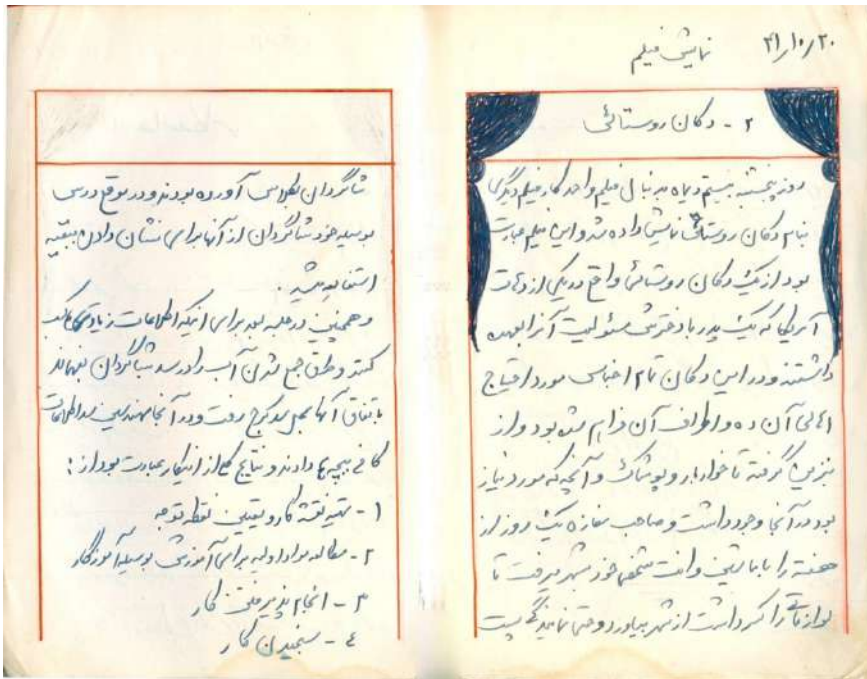 ۴۱/۱۰/۲۰
نمایش فیلم
۲ - دکان روستائی
روز پنجشنبه بیستم دیماه بدنبال فیلم واحد کار فیلم دیگری
بنام دکان روستائی نمایش داده شد و این فیلم عبارت
بود از یک دکان روستائی واقع در یکی از دهات
آمریکا که یک پدر با دخترش مسئولیت آنرا بعهده
داشتند و در این دکان تمام اجناس مورد احتیاج
اهالی آن ده و اطراف آن فراهم شده بود و از
بنزین گرفته تا خواربار و پوشاک و آنچه که مورد نیاز
بود در آنجا وجود داشت و صاحب مغازه یک روز از
هفته را با ماشین وانت شخصی خود بشهر میرفت تا
لوازماتی را که داشت از شهر بیاورد و حتی نمایندگی پست
شاگردان بکلاس آورده بودند و در موقع درس
بوسیله خود شاگردان از آنها برای نشان دادن به بقیه
استفاده میشد.
و همچنین در جلسه بعد برای اینکه اطلاعات زیادتری کسب
کنند و طرق جمع شدن آب را در سد بشاگردان بفهماند
باتفاق آنها بمحل سد کرج رفت و در آنجا مهندسین سد اطلاعات
کافی ببچه ها دادند و نتایج کلی از اینکار عبارت بود از :
۱ - تهیه نقشه کار و تعیین نقطه توجه
۲ - مطالعه مواد اولیه برای آموزش بوسیله آموزگار
۳ - انجام پذیرفتن کار
۴ - سنجیدن کار